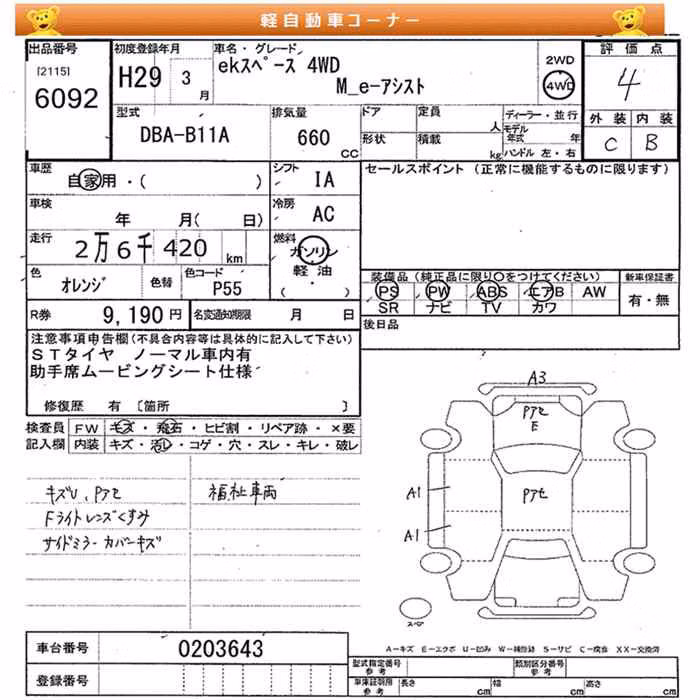 軽自動車コーナー
出品番号
[2115]
6092
初度登録年月
H29 3月
車名・グレード
ekスペース 4WD
M_e-アシスト
2WD
4WD
評価点
4
外装 内装
C B
型式
DBA-B11A
排気量
660 CC
ドア
形状
定員 人
積載 kg
ディーラー・並行
モデル年式 年
ハンドル 左・右
車歴
自家用・( )
シフト
IA
車検
年 月( 日)
冷房
AC
走行
2万6千420 km
燃料
ガソリン
軽油
( ・ )
色
オレンジ
色替
色コード
P55
R券
9,190円
名変通知期限 月 日
セールスポイント (正常に機能するものに限ります)
装備品 (純正品に限り○をつけてください)
PS PW ABS エアB AW
SR ナビ TV カワ
新車保証書
有・無
後日品
注意事項申告欄(不具合内容等は具体的に記入して下さい)
STタイヤ ノーマル車内有
助手席ムービングシート仕様
修復歴 有 〔箇所 〕
検査員記入欄
FW キズ・飛石・ヒビ割・リペア跡・×要
内装 キズ・汚レ・コゲ・穴・スレ・キレ・破レ
キズU、Pアセ
Fライトレンズくすみ
サイドミラーカバーキズ
福祉車両
A3
Pアセ
E
Pアセ
A1
A1
スペア
A-キズ E-エクボ U-凹ミ W-補修跡 S-サビ C-腐食 XX-交換済
車台番号
0203643
登録番号
型式指定番号
参考
類別区分番号
参考
車庫証明用
参考
長さ cm
幅 cm
高さ cm